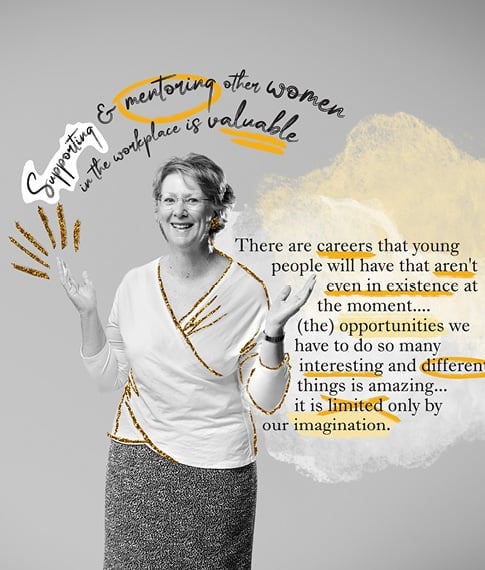 Supporting & mentoring other women
in the workplace is valuable
There are careers that young
people will have that aren't
even in existence at
the moment....
(the) opportunities we
have to do so many
interesting and different
things is amazing...
it is limited only by
our imagination.